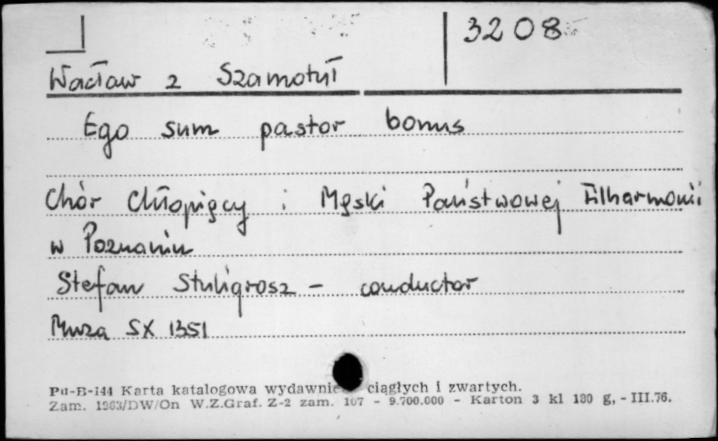 3208
Wacław z Szamotuł
Ego sum pastor bonus
Chór Chłopięcy i Męski Państwowej Filharmonii
w Poznaniu
Stefan Stuligrosz - conductor
Muza SX 1351
Pu-B-144 Karta katalogowa wydawnic ciągłych i zwartych.
Zam. 1963/DW/On W.Z.Graf. Z-2 zam. 107 - 9.700.000 - Karton 3 kl 180 g, - III.76.